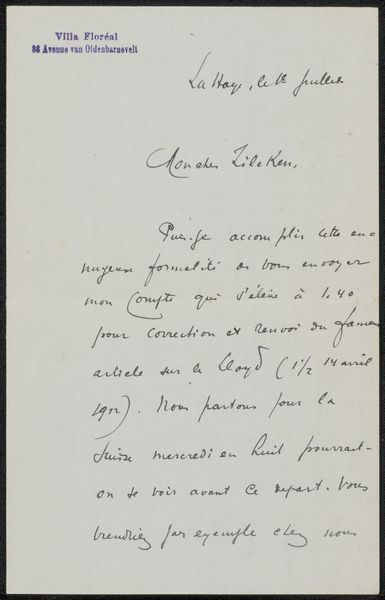 Villa Floréal
88 Avenue van Oldenbarnevelt
La Haye, le 1r Juillet
Mon cher Zilcken,
Puis-je accomplir cette en-
nuyeuse formalité de vous envoyer
mon Compte qui s'élève à 1.40
pour correction et renvoi du fameux
article sur le Lloyd (1 1/2 14 avril
1902). Nous partons pour la
Suisse mercredi en huit pourrait-
on se voir avant ce départ. Vous
viendriez par exemple chez nous